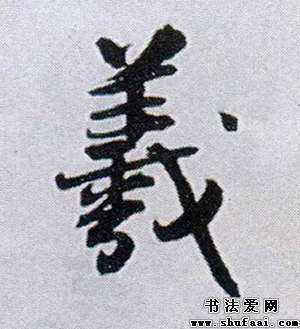 羲
书法爱网
www.shufaai.com